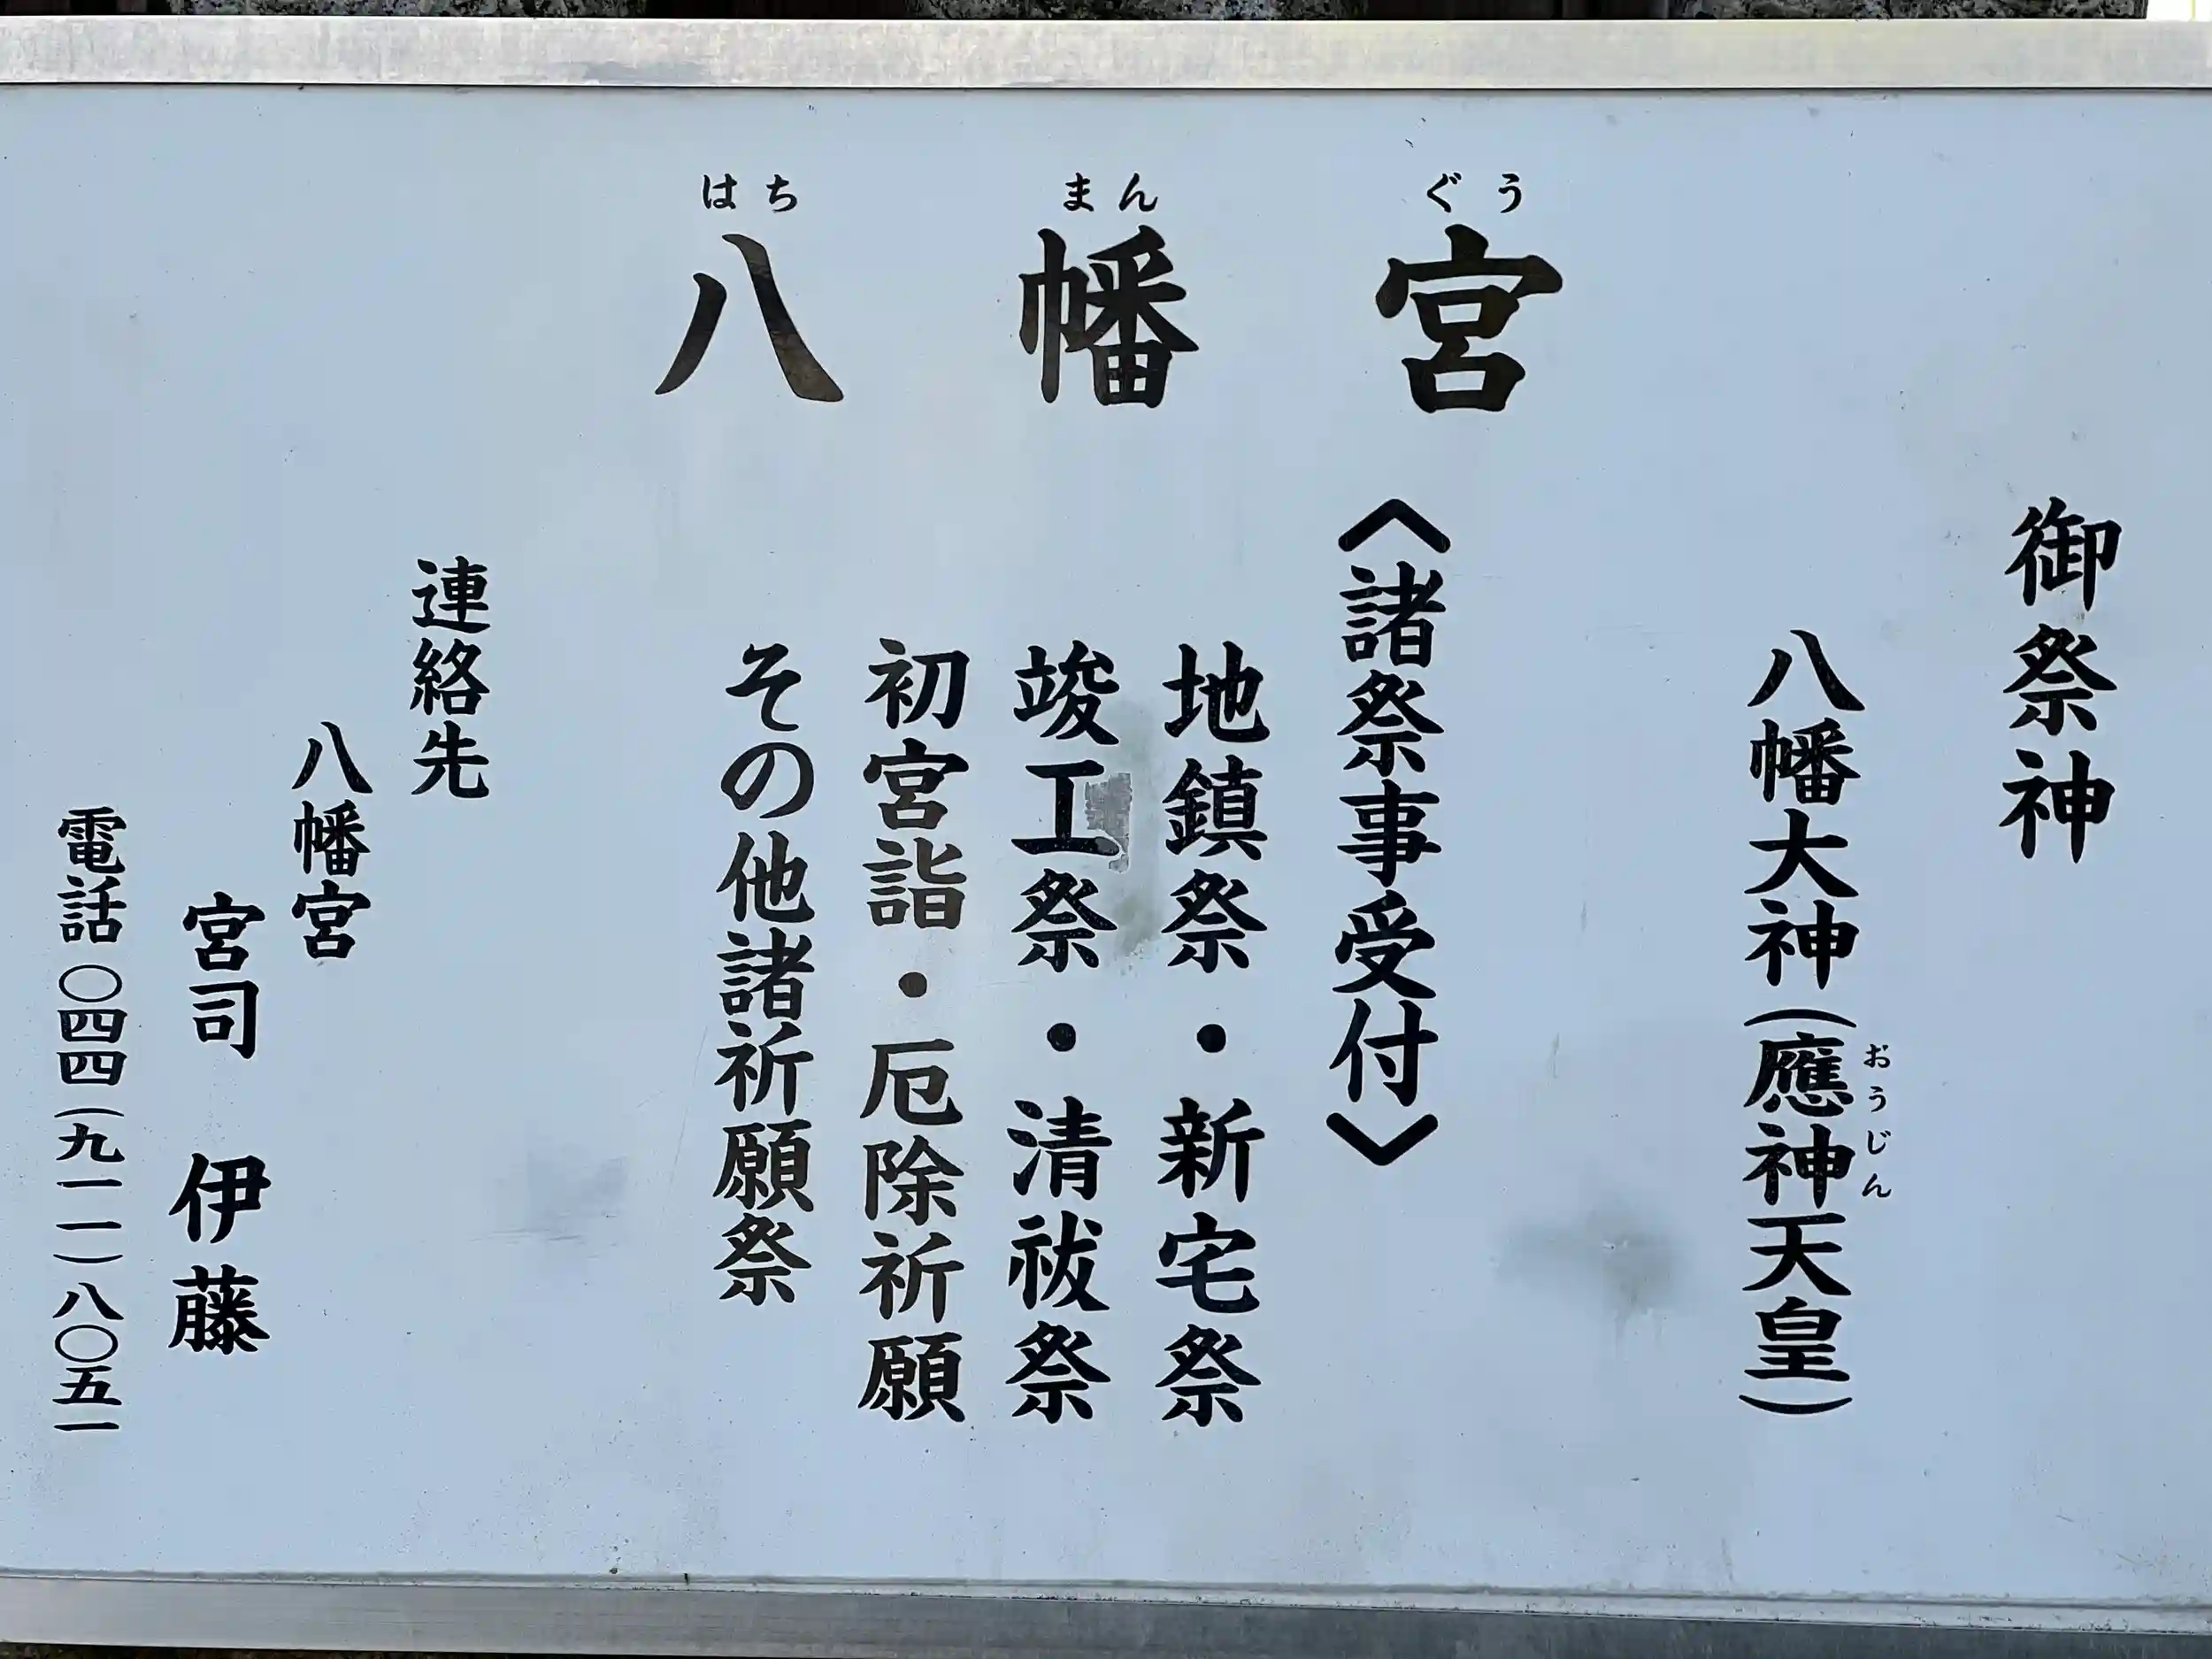 はちまんぐう
八幡宮
御祭神
八幡大神(應神天皇)
おうじん
〈諸祭事受付〉
地鎮祭・新宅祭
竣工祭・清祓祭
初宮詣・厄除祈願
その他諸祈願祭
連絡先
八幡宮
宮司 伊藤
電話 〇四四(九一一)八〇五一